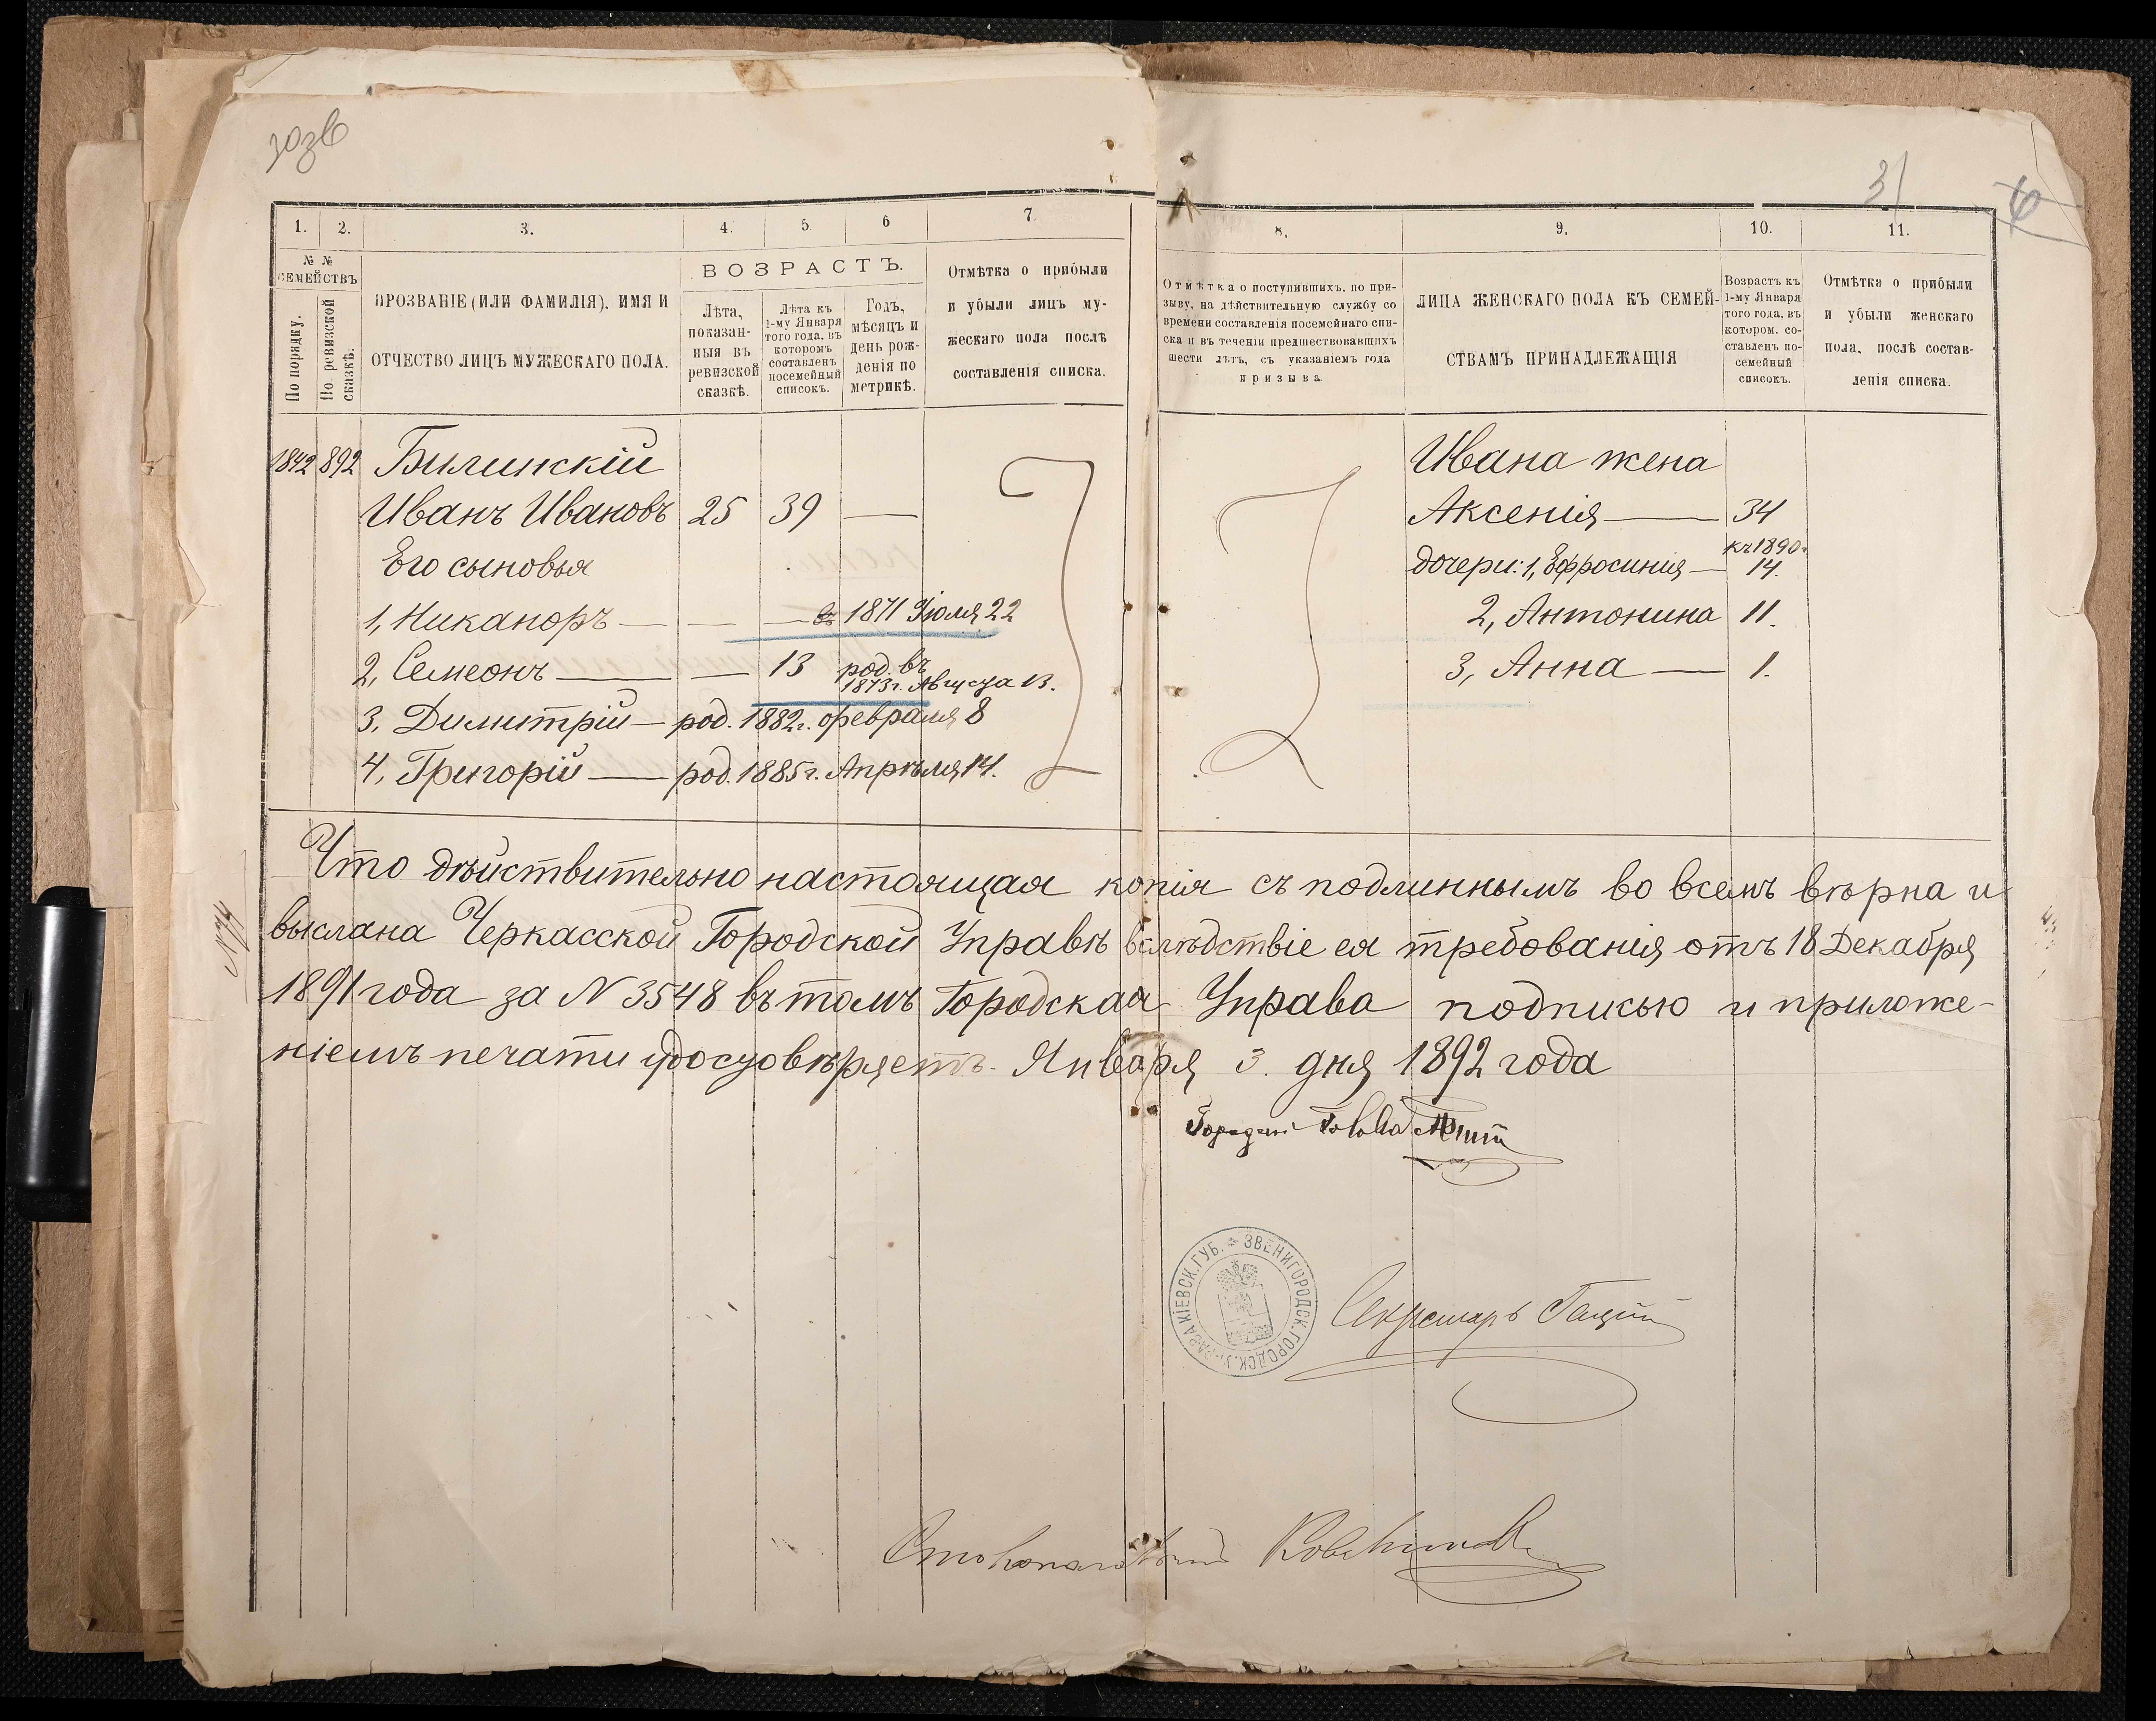 30зв
31
6
1. 2. 3. 4. 5. 6 7.
№ № СЕМЕЙСТВЪ
По порядку.
По ревизской сказкѣ.
ПРОЗВАНІЕ (ИЛИ ФАМИЛІЯ), ИМЯ И
ОТЧЕСТВО ЛИЦЪ МУЖЕСКАГО ПОЛА.
ВОЗРАСТЪ.
Лѣта,
показан-
ныя въ
ревизской
сказкѣ.
Лѣта къ
1-му Января
того года, въ
которомъ
составленъ
посемейный
списокъ.
Годъ,
мѣсяцъ и
день рож-
денія по
метрикѣ.
Отмѣтка о прибыли
и убыли лицъ му-
жескаго пола послѣ
составленія списка.
8. 9. 10. 11.
Отмѣтка о поступившихъ, по при-
зыву, на дѣйствительную службу со
времени составленія посемейнаго спи-
ска и въ теченіи предшествовавшихъ
шести лѣтъ, съ указаніемъ года
призыва.
ЛИЦА ЖЕНСКАГО ПОЛА КЪ СЕМЕЙ-
СТВАМЪ ПРИНАДЛЕЖАЩІЯ
Возрастъ къ
1-му Января
того года, въ
котором. со-
ставленъ по-
семейный
списокъ.
Отмѣтка о прибыли
и убыли женскаго
пола, послѣ состав-
ленія списка.
1842 892 Билинскій
Иванъ Ивановъ 25 39 —
Его сыновья
1, Никаноръ — — — 1871 Іюля 22
2, Семеонъ — — 13 род. въ
1873г. Августа 13.
3, Димитрій — род. 1882г. февраля 8
4, Григорій — род. 1885г. Апрѣля 14.
Ивана жена
Аксенія — 34
къ 1890г.
дочери: 1, Ефросинія — 14.
2, Антонина 11.
3, Анна — 1.
Что дѣйствительно настоящая копія съ подлиннымъ во всемъ вѣрна и
выслана Черкасской Городской Управѣ вслѣдствіе ея требованія отъ 18 Декабря
1891 года за N 3548 въ томъ Городская Управа подписью и приложе-
ніемъ печати удостовѣряетъ. Января 3. дня 1892 года
N 74
Голова
ЗВЕНИГОРОДСК. ГОРОДСК. УПРАВА КІЕВСК. ГУБ.
Секретарь